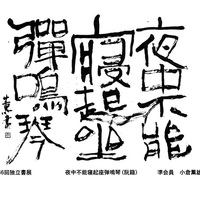 夜中不能
寢起坐
彈鳴琴
6回独立書展 夜中不能寝起座弾鳴琴(阮籍) 準会員 小倉薫